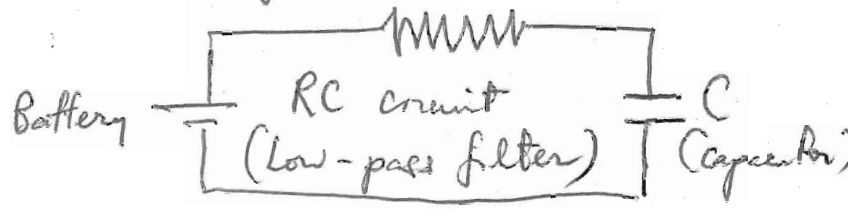 Battery
RC circuit
(Low-pass filter)
C
(Capacitor)